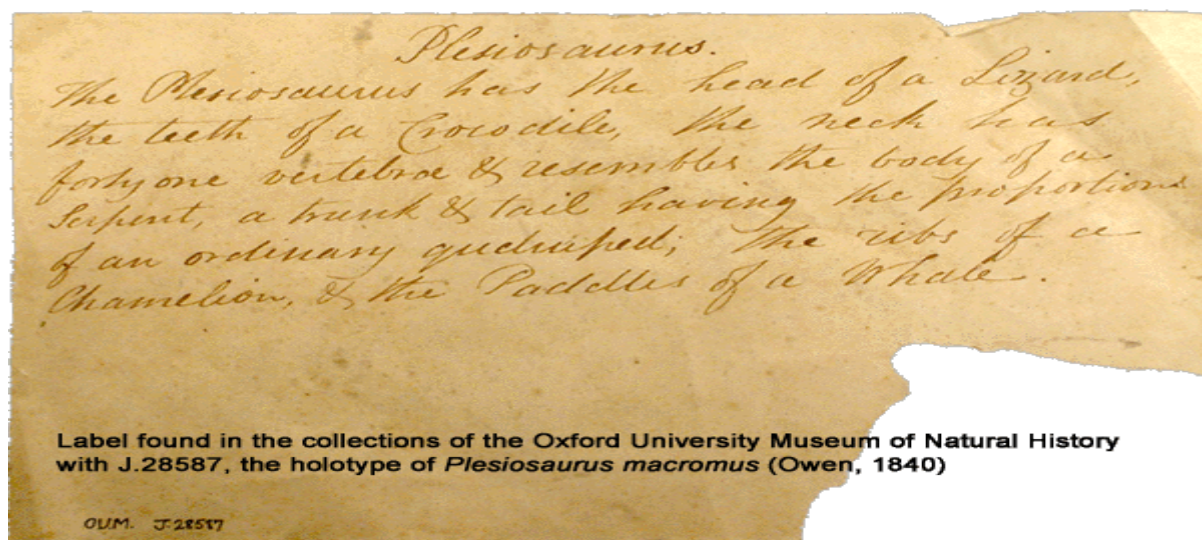 Plesiosaurus.
The Plesiosaurus has the head of a Lizard,
the teeth of a Crocodile, the neck has
forty one vertebræ & resembles the body of a
Serpent, a trunk & tail having the proportions
of an ordinary quadruped; the ribs of a
Chamelion, & the Paddles of a Whale.
Label found in the collections of the Oxford University Museum of Natural History
with J.28587, the holotype of Plesiosaurus macromus (Owen, 1840)
OUM. J.28587